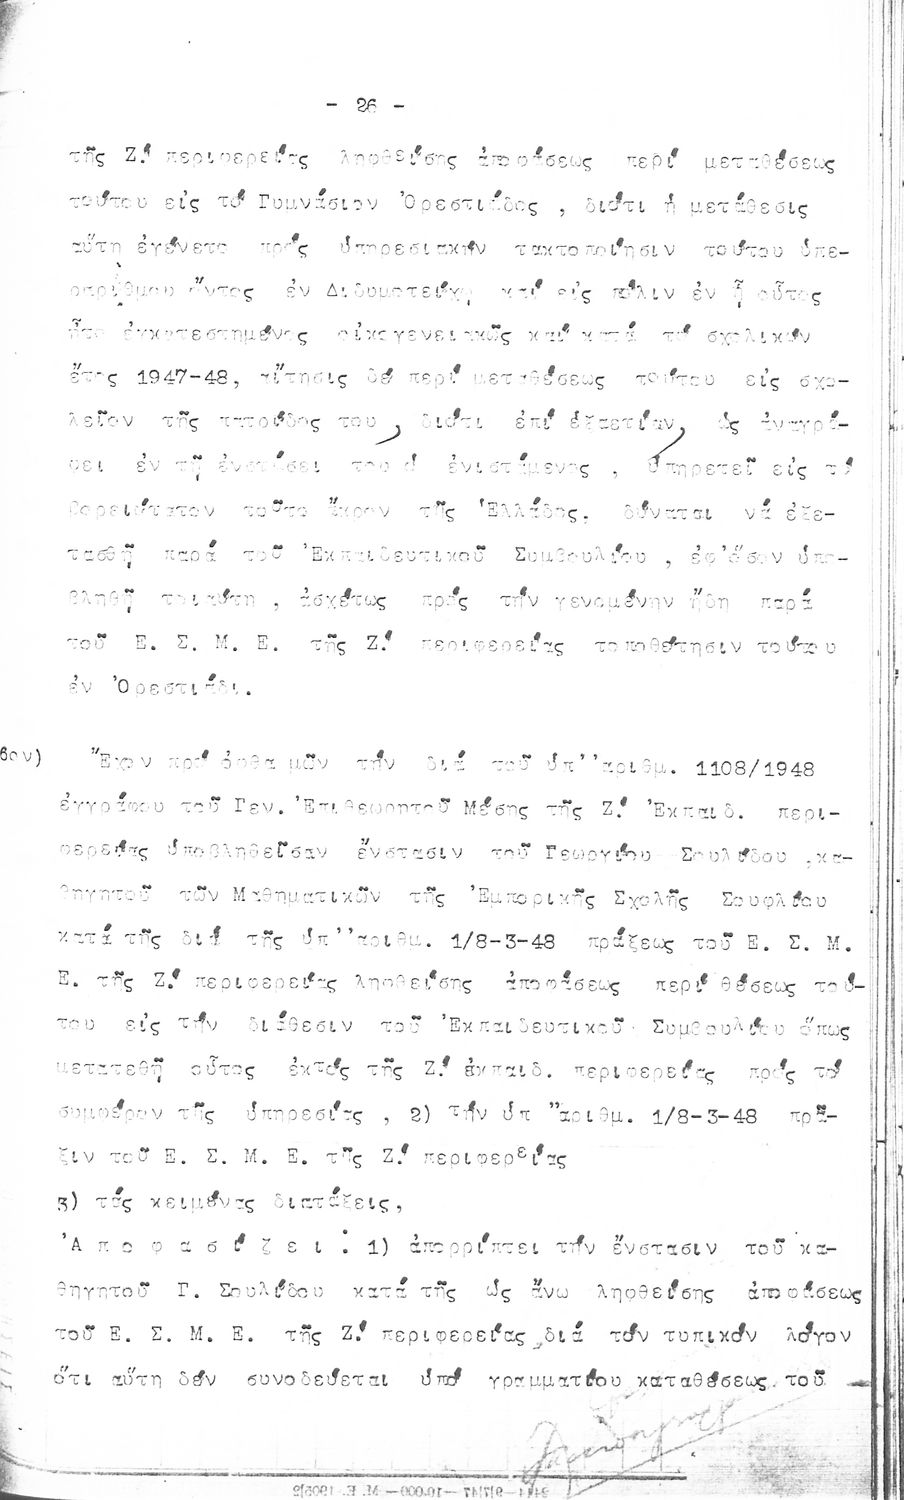 - 26 -
τῆς Ζ! περιφερείας ληφθείσης ἀποφάσεως περί μεταθέσεως
τούτου εἰς τό Γυμνάσιον Ὀρεστιάδος , διότι ἡ μετάθεσις
αὕτη ἐγένετο πρός ὑπηρεσιακήν τακτοποίησιν τούτου ὑπε-
ραρίθμου ὄντος ἐν Διδυμοτείχῳ καί εἰς πόλιν ἐν ᾗ οὗτος
ἦτο ἐγκατεστημένος οἰκογενειακῶς καί κατά τό σχολικόν
ἔτος 1947-48, αἴτησις δέ περί μεταθέσεως τούτου εἰς σχο-
λεῖον τῆς πατρίδος του , διότι ἐπί ἑξαετίαν, ὡς ἀναγρά-
φει ἐν τῇ ἐνστάσει του ὁ ἐνιστάμενος , ὑπηρετεῖ εἰς τό
βορειότατον τοῦτο ἄκρον τῆς Ἑλλάδος, δύναται νά ἐξε-
τασθῇ παρά τοῦ Ἐκπαιδευτικοῦ Συμβουλίου , ἐφ'ὅσον ὑπο-
βληθῇ τοιαύτη , ἀσχέτως πρός τήν γενομένην ἤδη παρά
τοῦ Ε. Σ. Μ. Ε. τῆς Ζ! περιφερείας τοποθέτησιν τούτου
ἐν Ὀρεστιάδι.
6ον) Ἔχον πρό ὀφθαλμῶν τήν διά τοῦ ὑπ''αριθμ. 1108/1948
ἐγγράφου τοῦ Γεν. Ἐπιθεωρητοῦ Μέσης τῆς Ζ! Ἐκπαιδ. περι-
φερείας ὑποβληθεῖσαν ἔνστασιν τοῦ Γεωργίου Σουλίδου ,κα-
θηγητοῦ τῶν Μαθηματικῶν τῆς Ἐμπορικῆς Σχολῆς Σουφλίου
κατά τῆς διά τῆς ὑπ''αριθμ. 1/8-3-48 πράξεως τοῦ Ε. Σ. Μ.
Ε. τῆς Ζ! περιφερείας ληφθείσης ἀποφάσεως περί θέσεως τού-
του εἰς τήν διάθεσιν τοῦ Ἐκπαιδευτικοῦ Συμβουλίου ὅπως
μετατεθῇ οὗτος ἐκτός τῆς Ζ! ἐκπαιδ. περιφερείας πρός τό
συμφέρον τῆς ὑπηρεσίας , 2) τήν ὑπ "αριθμ. 1/8-3-48 πρᾶ-
ξιν τοῦ Ε. Σ. Μ. Ε. τῆς Ζ! περιφερείας
3) τάς κειμένας διατάξεις,
Ἀ π ο φ α σ ί ζ ε ι : 1) ἀπορρίπτει τήν ἔνστασιν τοῦ κα-
θηγητοῦ Γ. Σουλίδου κατά τῆς ὡς ἄνω ληφθείσης ἀποφάσεως
τοῦ Ε. Σ. Μ. Ε. τῆς Ζ! περιφερείας διά τόν τυπικόν λόγον
ὅτι αὕτη δέν συνοδεύεται ὑπό γραμματίου καταθέσεως τοῦ